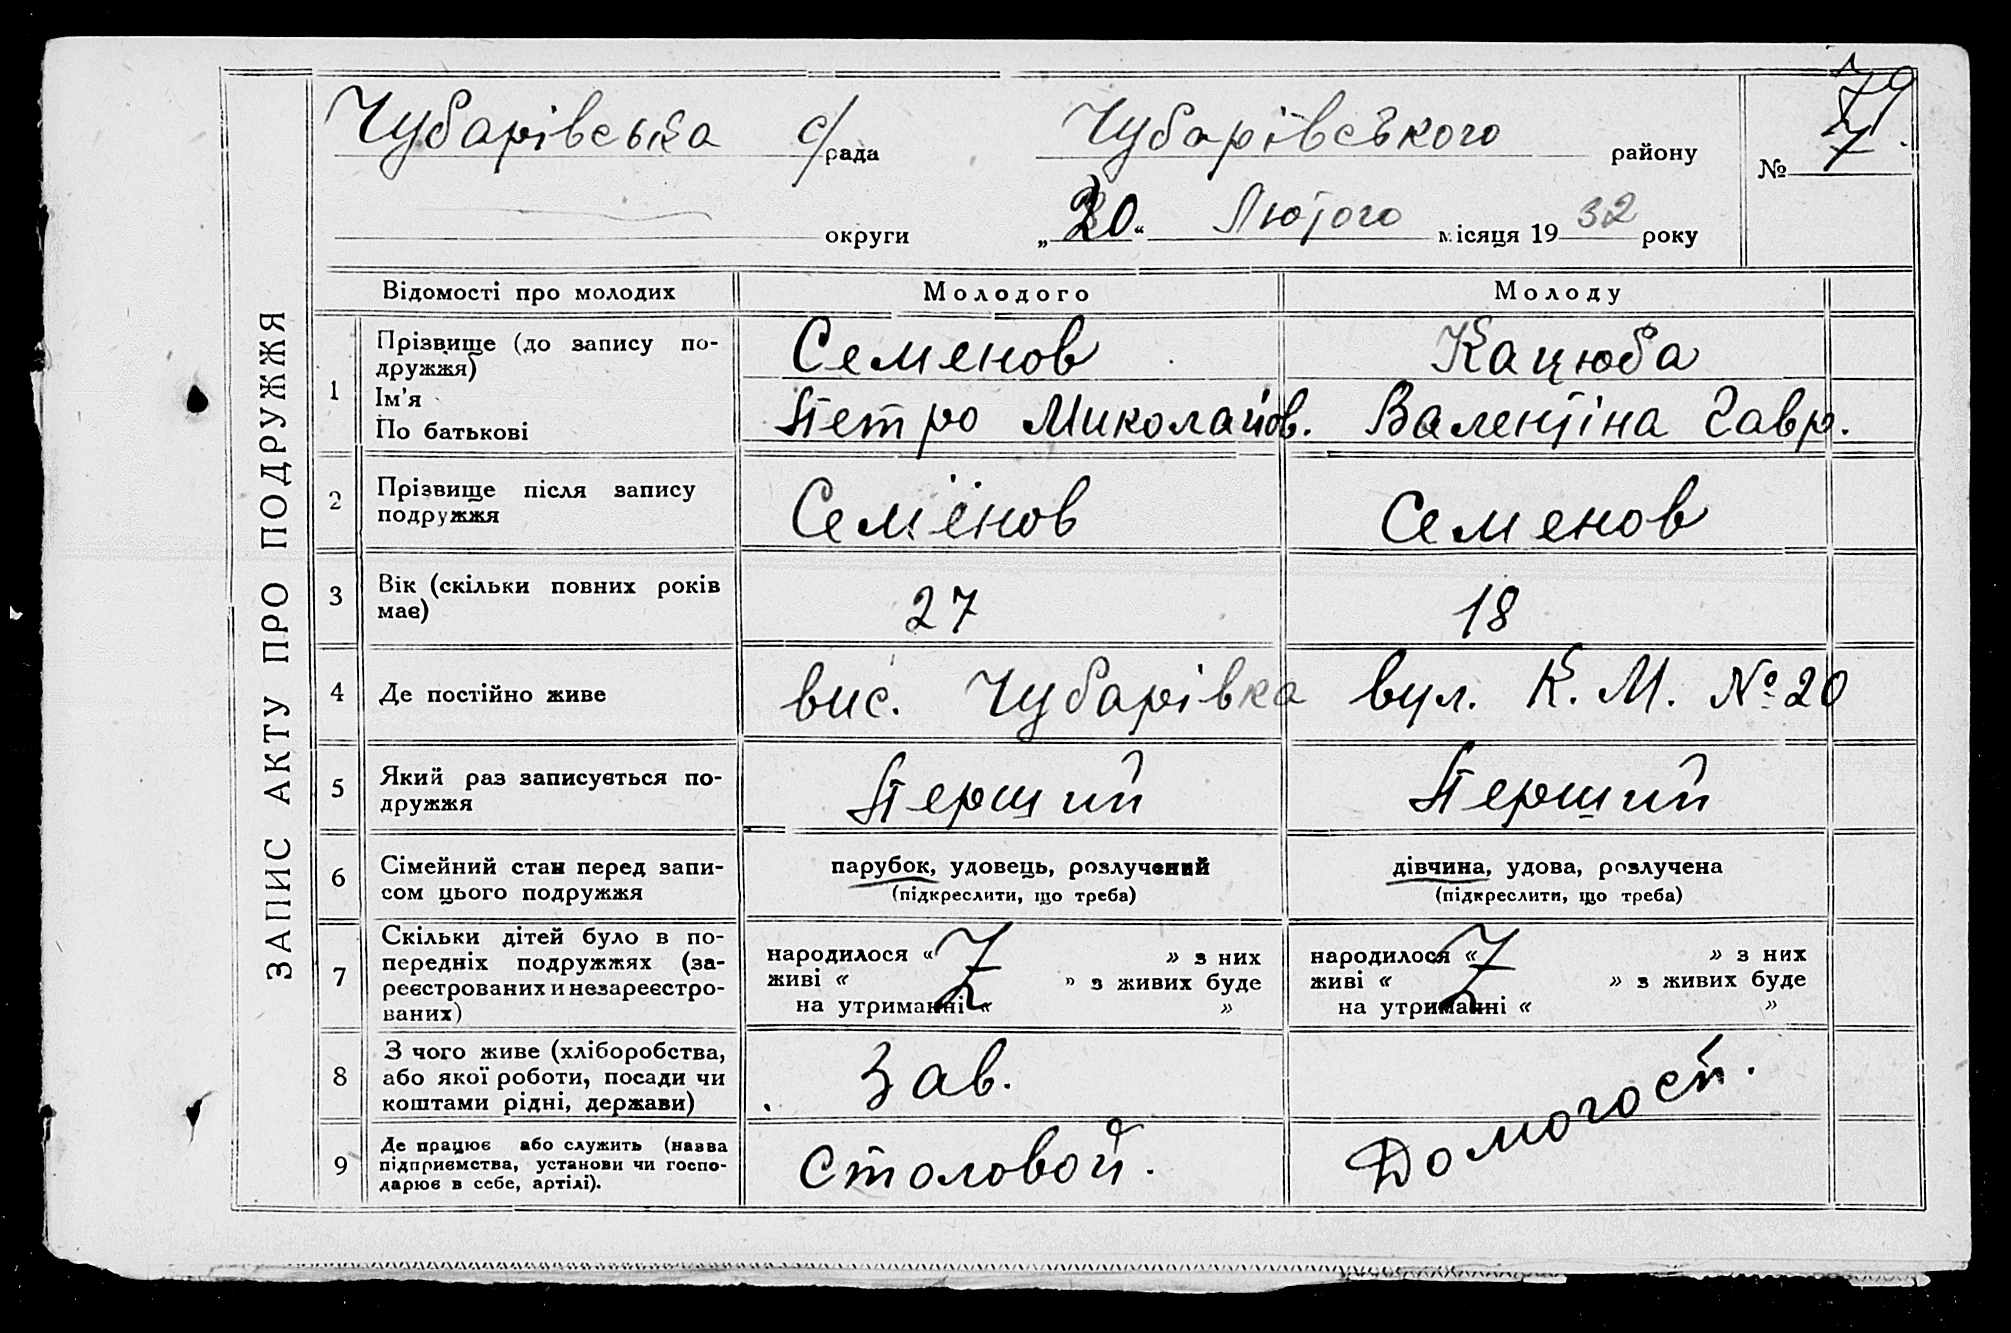 ЗАПИС АКТУ ПРО ПОДРУЖЖЯ
Чубарівська с/рада Чубарівського району №
округи „20“ Лютого місяця 1932 року
Відомості про молодих Молодого Молоду
1 Прізвище (до запису по-
дружжя) Семенов Кацюба
Ім'я
По батькові Петро Миколайов. Валентіна Гавр.
2 Прізвище після запису
подружжя Семёнов Семенов
3 Вік (скільки повних років
має) 27 18
4 Де постійно живе вис. Чубарівка вул. К. М. № 20
5 Який раз записується по-
дружжя Перший Перший
6 Сімейний стан перед запи-
сом цього подружжя
парубок, удовець, розлучений
(підкреслити, що треба)
дівчина, удова, розлучена
(підкреслити, що треба)
7 Скільки дітей було в по-
передніх подружжях (за-
реєстрованих и незареєстро-
ваних)
народилося « » з них
живі « » з живих буде
на утриманні « »
народилося « » з них
живі « » з живих буде
на утриманні « »
8 З чого живе (хліборобства,
або якої роботи, посади чи
коштами рідні, держави) Зав.
9 Де працює або служить (назва
підприємства, установи чи госпо-
дарює в себе, артілі). Столовой. Домогосп.